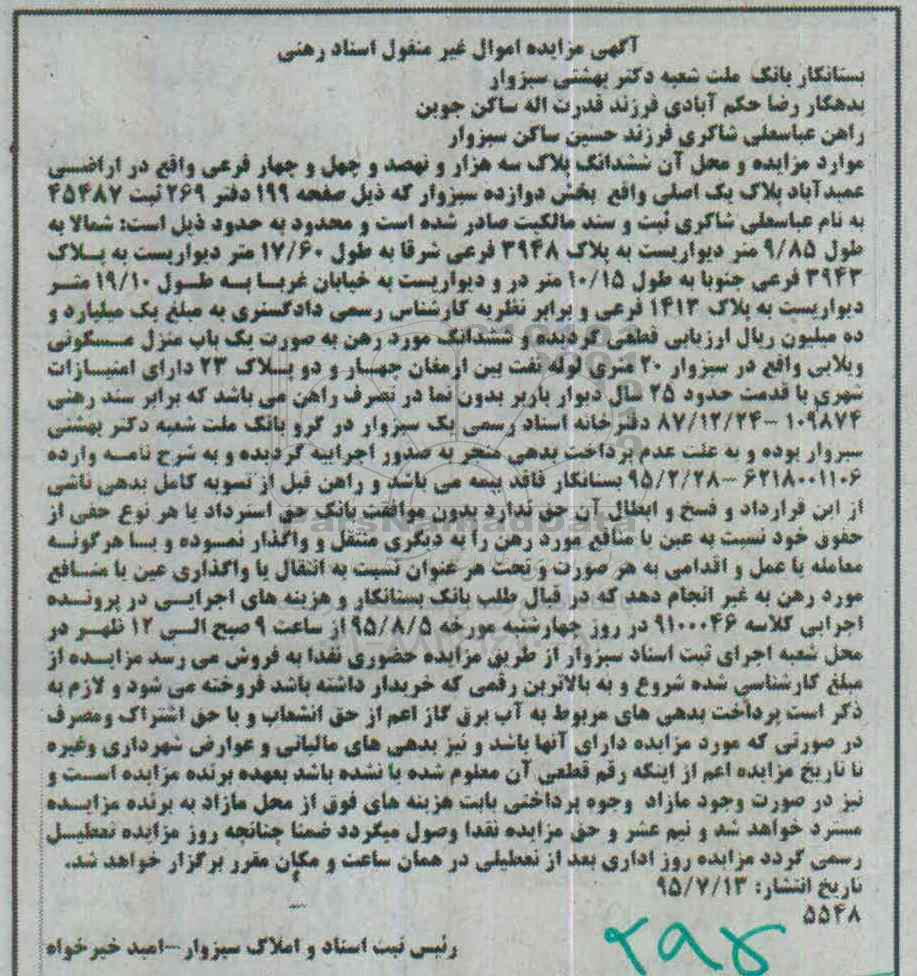 آگهی مزایده اموال غیر منقول اسناد رهنی
بستانکار بانک ملت شعبه دکتر بهشتی سبزوار
بدهکار رضا حکم آبادی فرزند قدرت اله ساکن جوین
راهن عباسعلی شاکری فرزند حسین ساکن سبزوار
موارد مزایده و محل آن ششدانگ پلاک سه هزار و نهصد و چهل و چهار فرعی واقع در اراضی
عمیدآباد پلاک یک اصلی واقع بخش دوازده سبزوار که ذیل صفحه ۱۹۹ دفتر ۲۶۹ ثبت ۴۵۴۸۷
به نام عباسعلی شاکری ثبت و سند مالکیت صادر شده است و محدود به حدود ذیل است: شمالا به
طول ۹/۸۵ متر دیواریست به پلاک ۳۹۴۸ فرعی شرقا به طول ۱۷/۶۰ متر دیواریست به پلاک
۳۹۴۳ فرعی جنوبا به طول ۱۰/۱۵ متر در و دیواریست به خیابان غربا به طول ۱۹/۱۰ متر
دیواریست به پلاک ۱۴۱۳ فرعی و برابر نظریه کارشناس رسمی دادگستری به مبلغ یک میلیارد و
ده میلیون ریال ارزیابی قطعی گردیده و ششدانگ مورد رهن به صورت یک باب منزل مسکونی
ویلایی واقع در سبزوار ۲۰ متری لوله نفت بین ارمغان چهار و دو پلاک ۲۳ دارای امتیازات
شهری با قدمت حدود ۲۵ سال دیوار باربر بدون نما در تصرف راهن می باشد که برابر سند رهنی
۱۰۹۸۷۴ –۸۷/۱۲/۲۴ دفترخانه اسناد رسمی یک سبزوار در گرو بانک ملت شعبه دکتر بهشتی
سبزوار بوده و به علت عدم پرداخت بدهی منجر به صدور اجراییه گردیده و به شرح نامه وارده
۶۲۱۸۰۰۱۱۰۶ –۹۵/۲/۲۸ بستانکار فاقد بیمه می باشد و راهن قبل از تسویه کامل بدهی ناشی
از این قرارداد و فسخ و ابطال آن حق ندارد بدون موافقت بانک حق استرداد یا هر نوع حقی از
حقوق خود نسبت به عین یا منافع مورد رهن را به دیگری منتقل و واگذار نموده و با هرگونه
معامله یا عمل و اقدامی به هر صورت و تحت هر عنوان نسبت به انتقال یا واگذاری عین یا منافع
مورد رهن به غیر انجام دهد که در قبال طلب بانک بستانکار و هزینه های اجرایی در پرونده
اجرایی کلاسه ۹۱۰۰۰۴۶ در روز چهارشنبه مورخه ۹۵/۸/۵ از ساعت ۹ صبح الی ۱۲ ظهر در
محل شعبه اجرای ثبت اسناد سبزوار از طریق مزایده حضوری نقدا به فروش می رسد مزایده از
مبلغ کارشناسی شده شروع و به بالاترین رقمی که خریدار داشته باشد فروخته می شود و لازم به
ذکر است پرداخت بدهی های مربوط به آب برق گاز اعم از حق انشعاب و یا حق اشتراک ومصرف
در صورتی که مورد مزایده دارای آنها باشد و نیز بدهی های مالیاتی و عوارض شهرداری وغیره
تا تاریخ مزایده اعم از اینکه رقم قطعی آن معلوم شده یا نشده باشد بعهده برنده مزایده است و
نیز در صورت وجود مازاد وجوه پرداختی بابت هزینه های فوق از محل مازاد به برنده مزایده
مسترد خواهد شد و نیم عشر و حق مزایده نقدا وصول میگردد ضمنا چنانچه روز مزایده تعطیل
رسمی گردد مزایده روز اداری بعد از تعطیلی در همان ساعت و مکان مقرر برگزار خواهد شد.
تاریخ انتشار: ۹۵/۷/۱۳
۵۵۴۸
رئیس ثبت اسناد و املاک سبزوار –امید خیرخواه
ParsNamadData